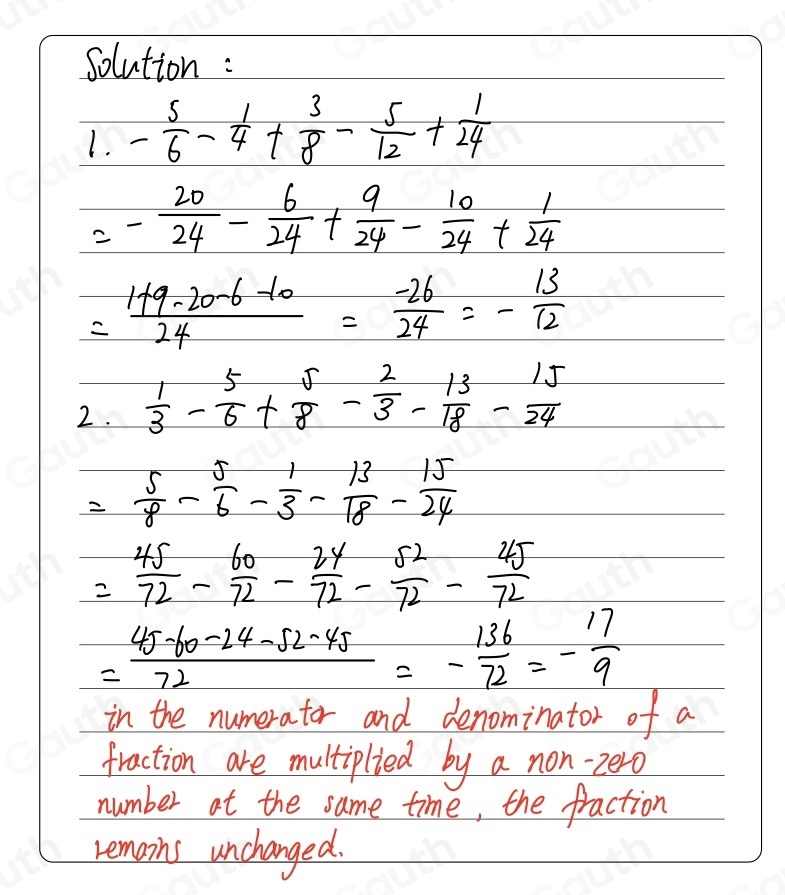 Solution :
1. -5/6 - 1/4 + 3/8 - 5/12 + 1/24
= -20/24 - 6/24 + 9/24 - 10/24 + 1/24
= (1+9-20-6-10)/24 = -26/24 = -13/12
2. 1/3 - 5/6 + 5/8 - 2/3 - 13/18 - 15/24
= 5/8 - 5/6 - 1/3 - 13/18 - 15/24
= 45/72 - 60/72 - 24/72 - 52/72 - 45/72
= (45-60-24-52-45)/72 = -136/72 = -17/9
in the numerator and denominator of a
fraction are multiplied by a non-zero
number at the same time, the fraction
remains unchanged.